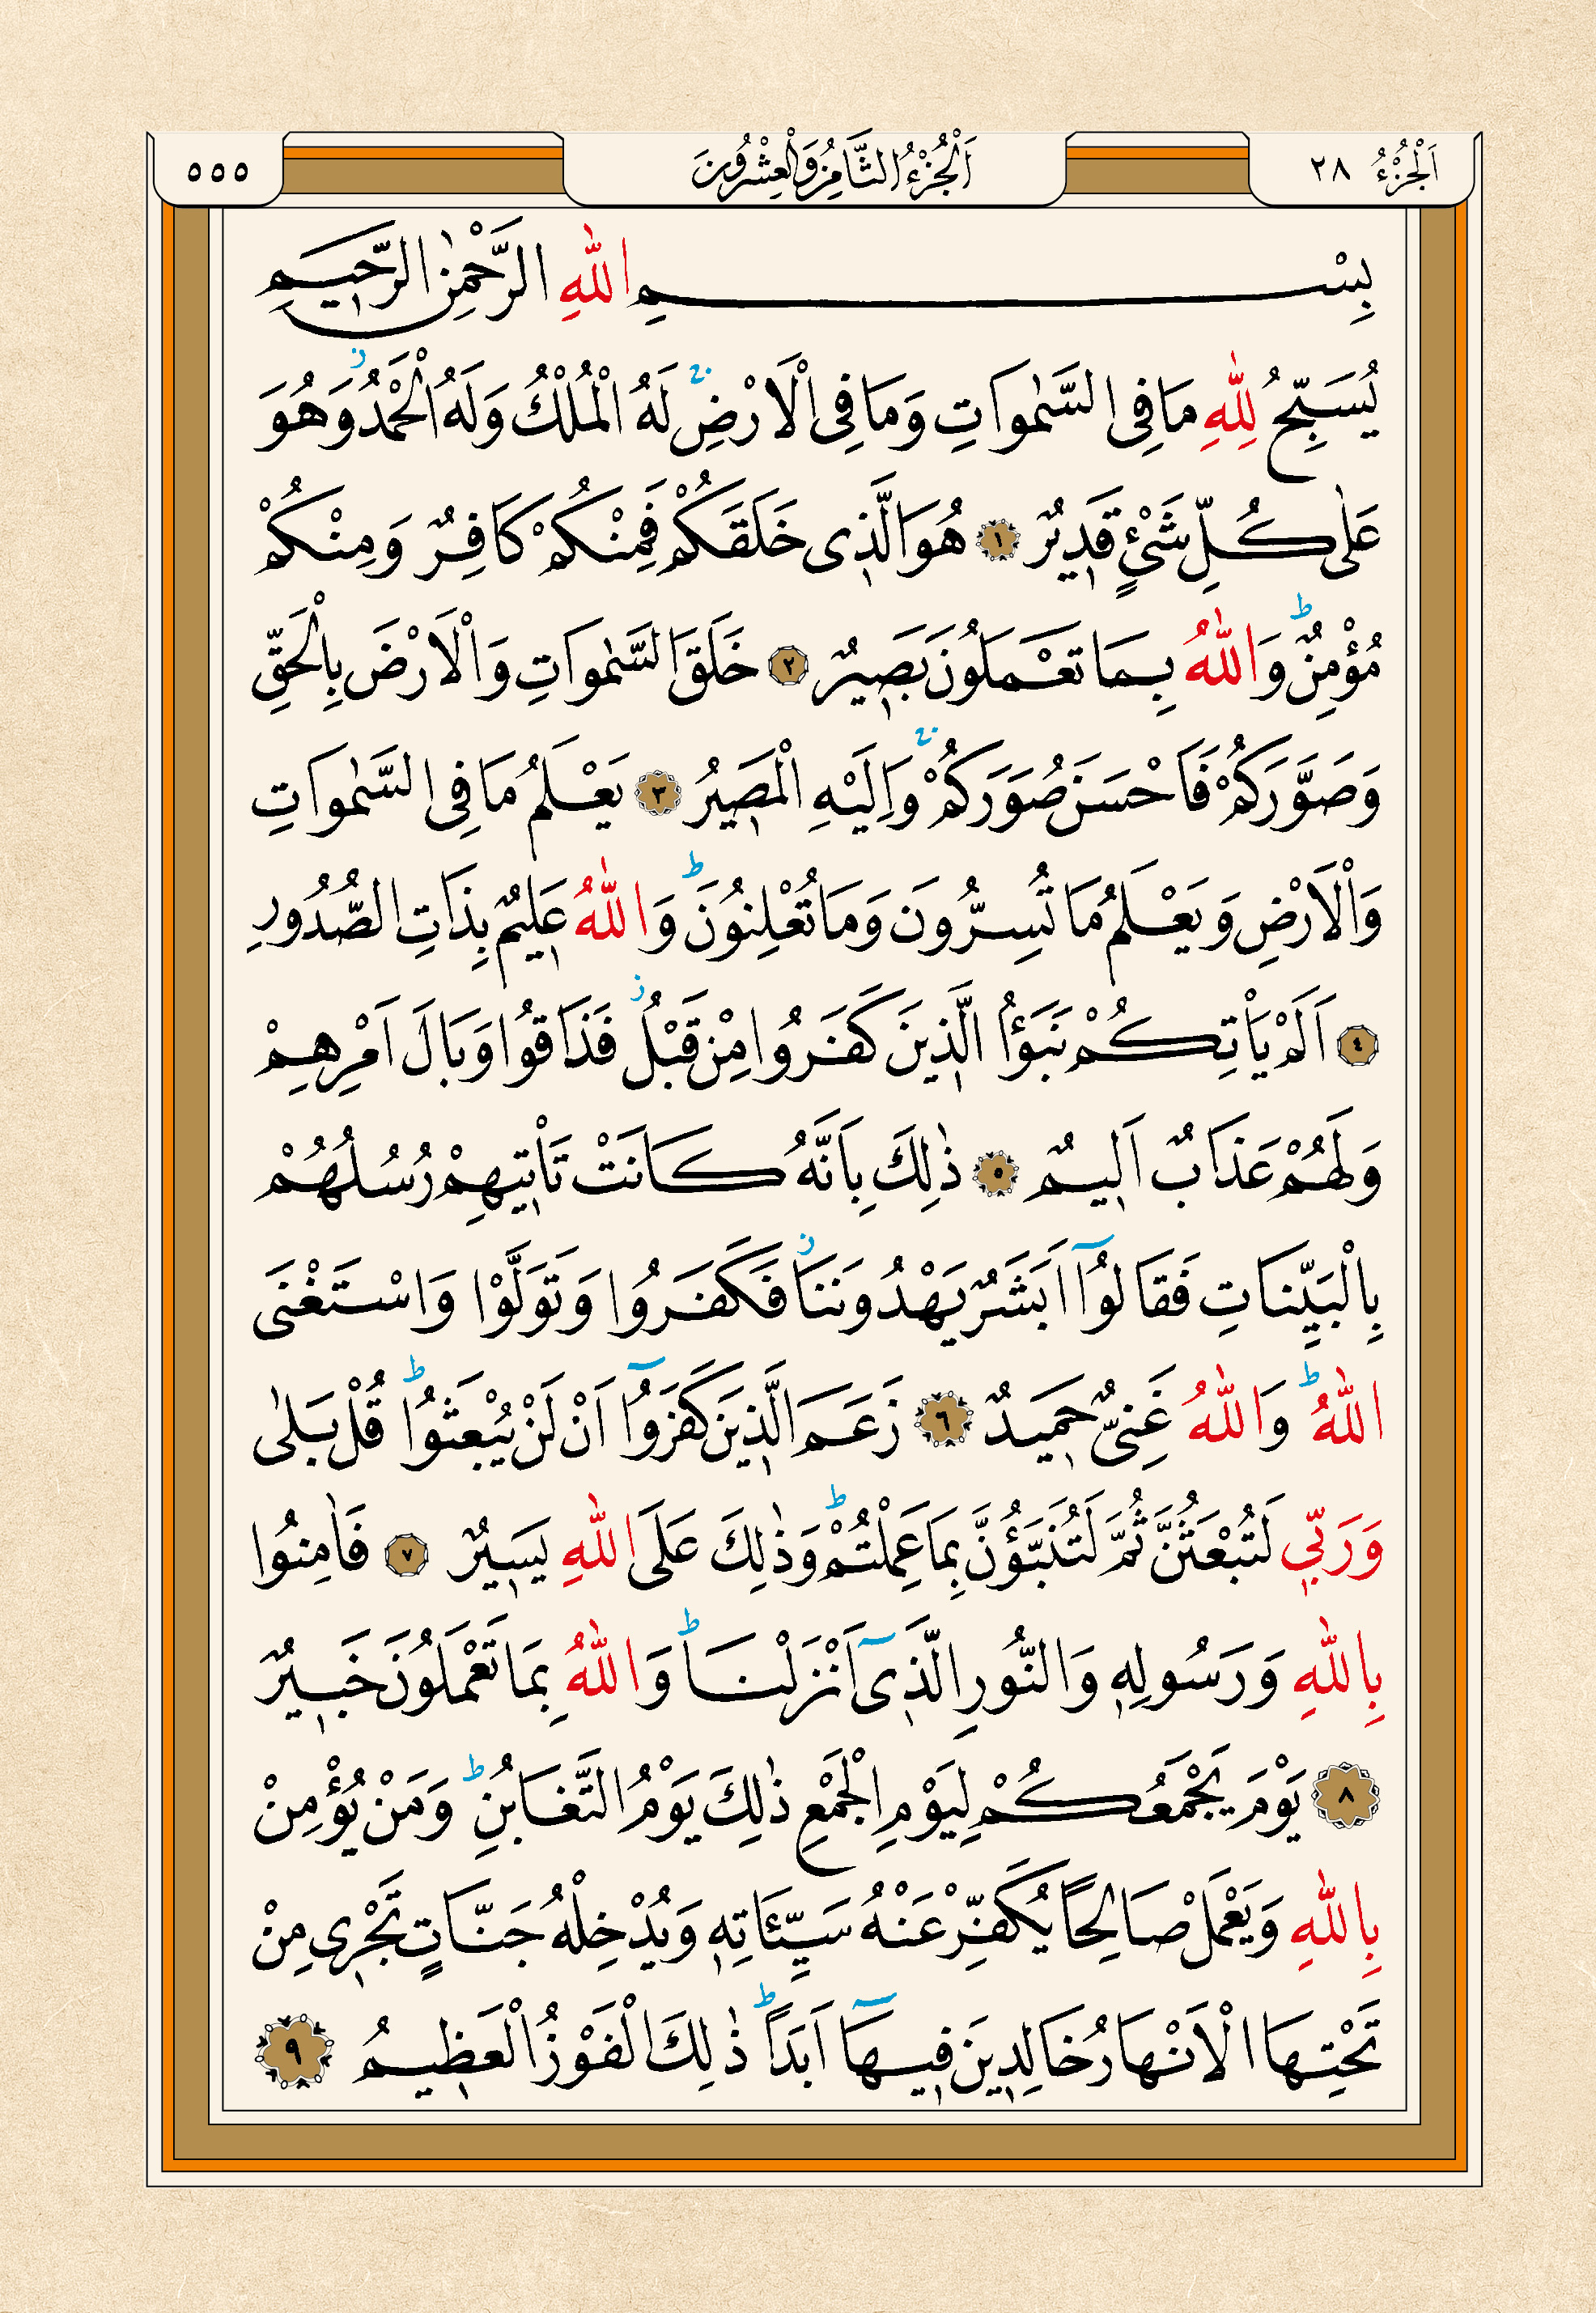 اَلْجُزْءُ ٢٨
اَلْجُزْءُ الثَّامِنُ وَالْعِشْرُونَ
٥٥٥
بِسْمِ اللّٰهِ الرَّحْمٰنِ الرَّحٖيمِ
يُسَبِّحُ لِلّٰهِ مَا فِى السَّمٰوَاتِ وَمَا فِى الْاَرْضِۚ لَهُ الْمُلْكُ وَلَهُ الْحَمْدُؗ وَهُوَ
عَلٰى كُلِّ شَیْءٍ قَدٖيرٌ ﴿١﴾ هُوَ الَّذٖى خَلَقَكُمْ فَمِنْكُمْ كَافِرٌ وَمِنْكُمْ
مُؤْمِنٌؕ وَاللّٰهُ بِمَا تَعْمَلُونَ بَصٖيرٌ ﴿٢﴾ خَلَقَ السَّمٰوَاتِ وَالْاَرْضَ بِالْحَقِّ
وَصَوَّرَكُمْ فَاَحْسَنَ صُوَرَكُمْۚ وَاِلَيْهِ الْمَصٖيرُ ﴿٣﴾ يَعْلَمُ مَا فِى السَّمٰوَاتِ
وَالْاَرْضِ وَيَعْلَمُ مَا تُسِرُّونَ وَمَا تُعْلِنُونَؕ وَاللّٰهُ عَلٖيمٌ بِذَاتِ الصُّدُورِ
﴿٤﴾ اَلَمْ يَاْتِكُمْ نَبَؤُا الَّذٖينَ كَفَرُوا مِنْ قَبْلُؗ فَذَاقُوا وَبَالَ اَمْرِهِمْ
وَلَهُمْ عَذَابٌ اَلٖيمٌ ﴿٥﴾ ذٰلِكَ بِاَنَّهُ كَانَتْ تَاْتٖيهِمْ رُسُلُهُمْ
بِالْبَيِّنَاتِ فَقَالُٓوا اَبَشَرٌ يَهْدُونَنَاؗ فَكَفَرُوا وَتَوَلَّوْا وَاسْتَغْنَى
اللّٰهُؕ وَاللّٰهُ غَنِىٌّ حَمٖيدٌ ﴿٦﴾ زَعَمَ الَّذٖينَ كَفَرُٓوا اَنْ لَنْ يُبْعَثُواؕ قُلْ بَلٰى
وَرَبّٖى لَتُبْعَثُنَّ ثُمَّ لَتُنَبَّؤُنَّ بِمَا عَمِلْتُمْؕ وَذٰلِكَ عَلَى اللّٰهِ يَسٖيرٌ ﴿٧﴾ فَاٰمِنُوا
بِاللّٰهِ وَرَسُولِهٖ وَالنُّورِ الَّذٖٓى اَنْزَلْنَاؕ وَاللّٰهُ بِمَا تَعْمَلُونَ خَبٖيرٌ
﴿٨﴾ يَوْمَ يَجْمَعُكُمْ لِيَوْمِ الْجَمْعِ ذٰلِكَ يَوْمُ التَّغَابُنِؕ وَمَنْ يُؤْمِنْ
بِاللّٰهِ وَيَعْمَلْ صَالِحًا يُكَفِّرْ عَنْهُ سَيِّئَاتِهٖ وَيُدْخِلْهُ جَنَّاتٍ تَجْرٖى مِنْ
تَحْتِهَا الْاَنْهَارُ خَالِدٖينَ فٖيهَٓا اَبَدًاؕ ذٰلِكَ الْفَوْزُ الْعَظٖيمُ ﴿٩﴾